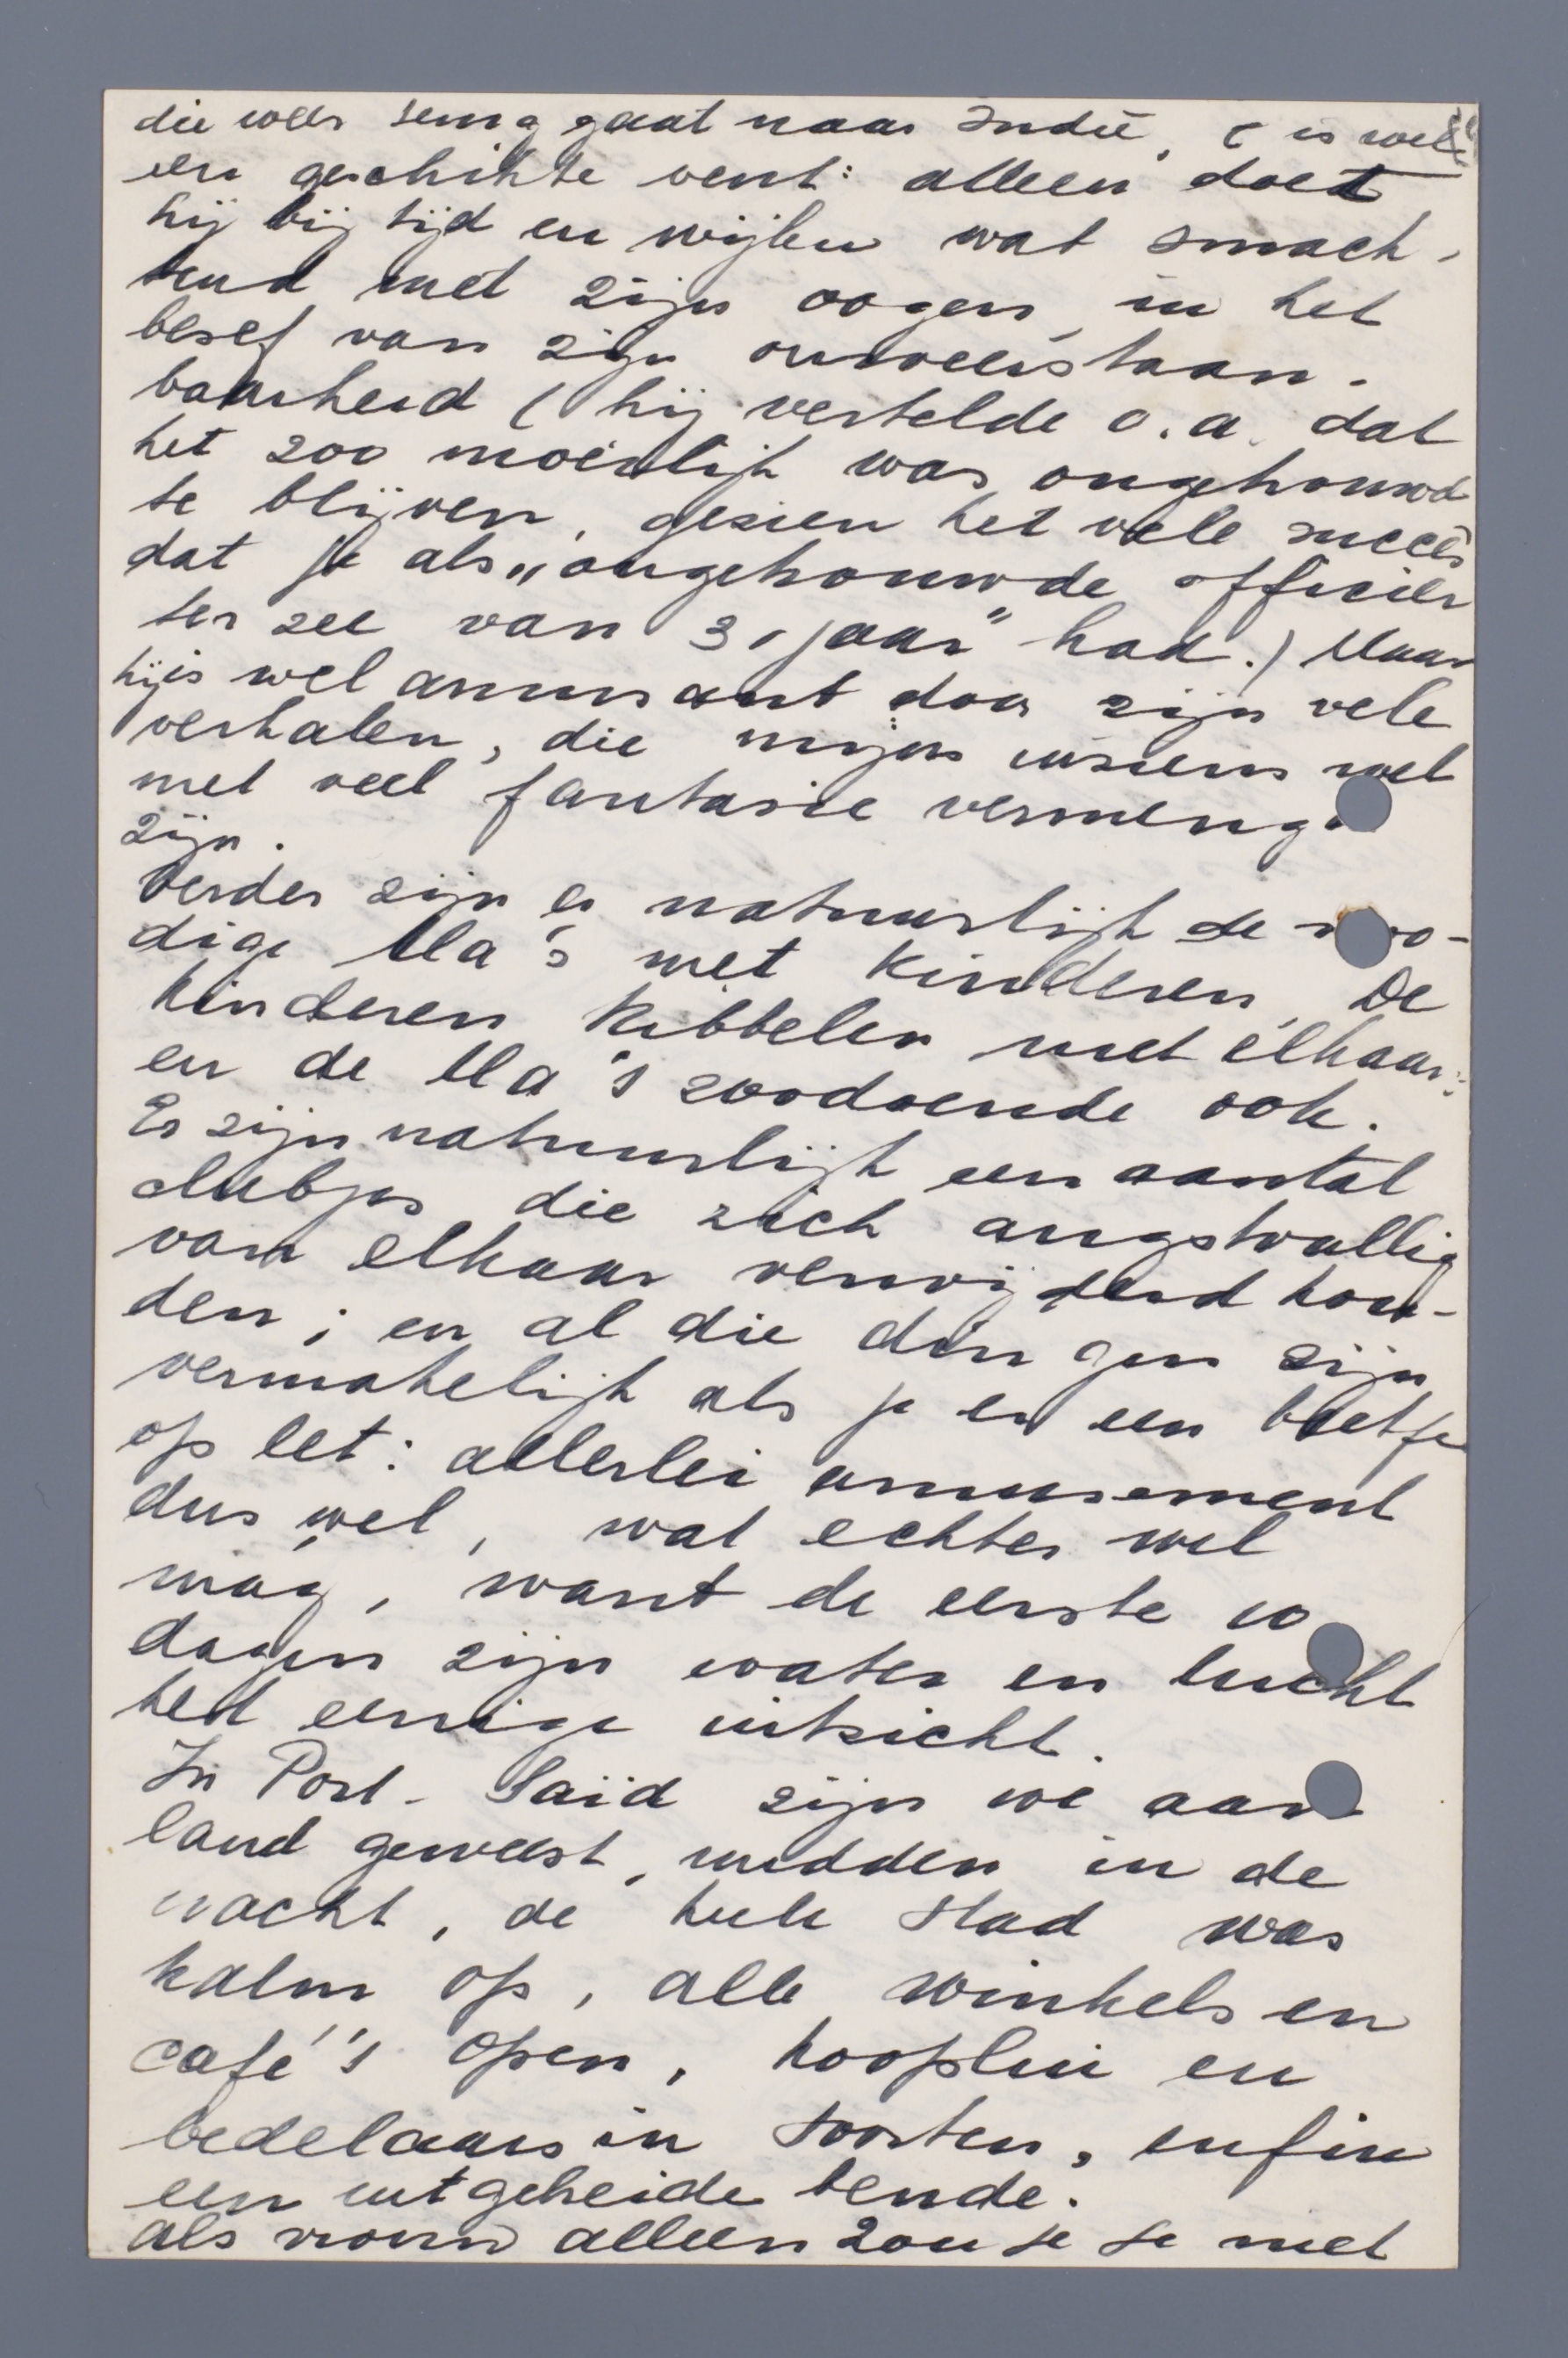 die weer terug gaat naar Indië, 't is wel
een geschikte vent: alleen doet
hij bij tijd en wijlen wat smach-
tend met zijn oogen, in het
besef van zijn onweerstaan-
baarheid (hij vertelde o.a. dat
het zoo moeilijk was ongetrouwd
te blijven, gezien het vele succès
dat je als „ongetrouwde officier
ter zee van 31 jaar" had.) Maar
hij is wel amusant door zijn vele
verhalen, die mijns inziens wel
met veel fantasie vermengd
zijn.
Verder zijn er natuurlijk de noo-
dige Ma's met kinderen, De
kinderen kibbelen met elkaar:
en de Ma's zoodoende ook.
Er zijn natuurlijk een aantal
clubjes die zich angstvallig
van elkaar verwijderd hou-
den; en al die dingen zijn
vermakelijk als je er een beetje
op let: allerlei amusement
dus wel, wat echter wel
mág, want de eerste 10
dagen zijn water en lucht
het eenige uitzicht.
In Port-Saïd zijn we aan
land geweest, midden in de
nacht, de heele stad was
kalm op, alle winkels en
café's open, kooplui en
bedelaars in soorten, enfin
een uitgebreide bende.
als vrouw alleen zou je je niet